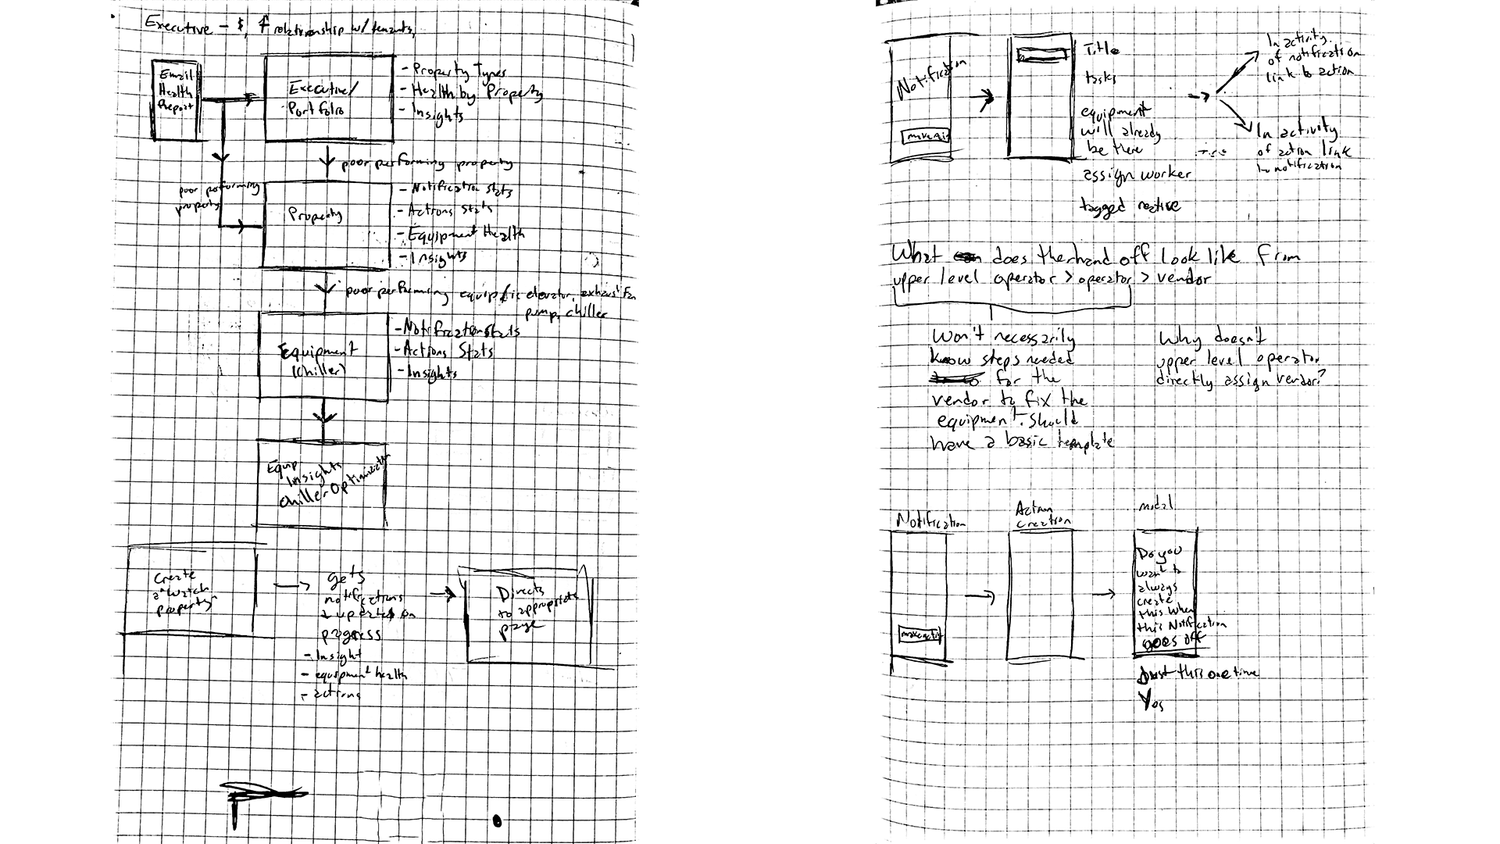 Executive - $, relationship w/ tenants,
Email
Health
Report
Executive/
Portfolio
- Property Types
- Health by Property
- Insights
poor performing property
poor performing
property
Property
- Notification stats
- Actions Stats
- Equipment Health
- Insights
poor performing equip elevator, exhaust fan
pump, chiller
Equipment
(chiller)
- Notification Stats
- Actions Stats
- Insights
Equip
Insights
Chiller Optimization
Create
a "watch
property"
gets
notifications
& updates on
progress
- Insight
- equipment health
- actions
Directs
to appropriate
page
Notification
Title
tasks
equipment
will already
be there
assign worker
tagged reactive
In activity
of notification
link to action
In activity
of action link
to notification
What does the hand off look like from
upper level operator > operator > vendor
Won't necessarily
know steps needed
for the
vendor to fix the
equipment. Should
have a basic template
Why doesn't
upper level operator
directly assign vendor?
Notification
Action
Creation
modal
Do you
want to
always
create
this when
this Notification
goes off
Just this one time
Yes